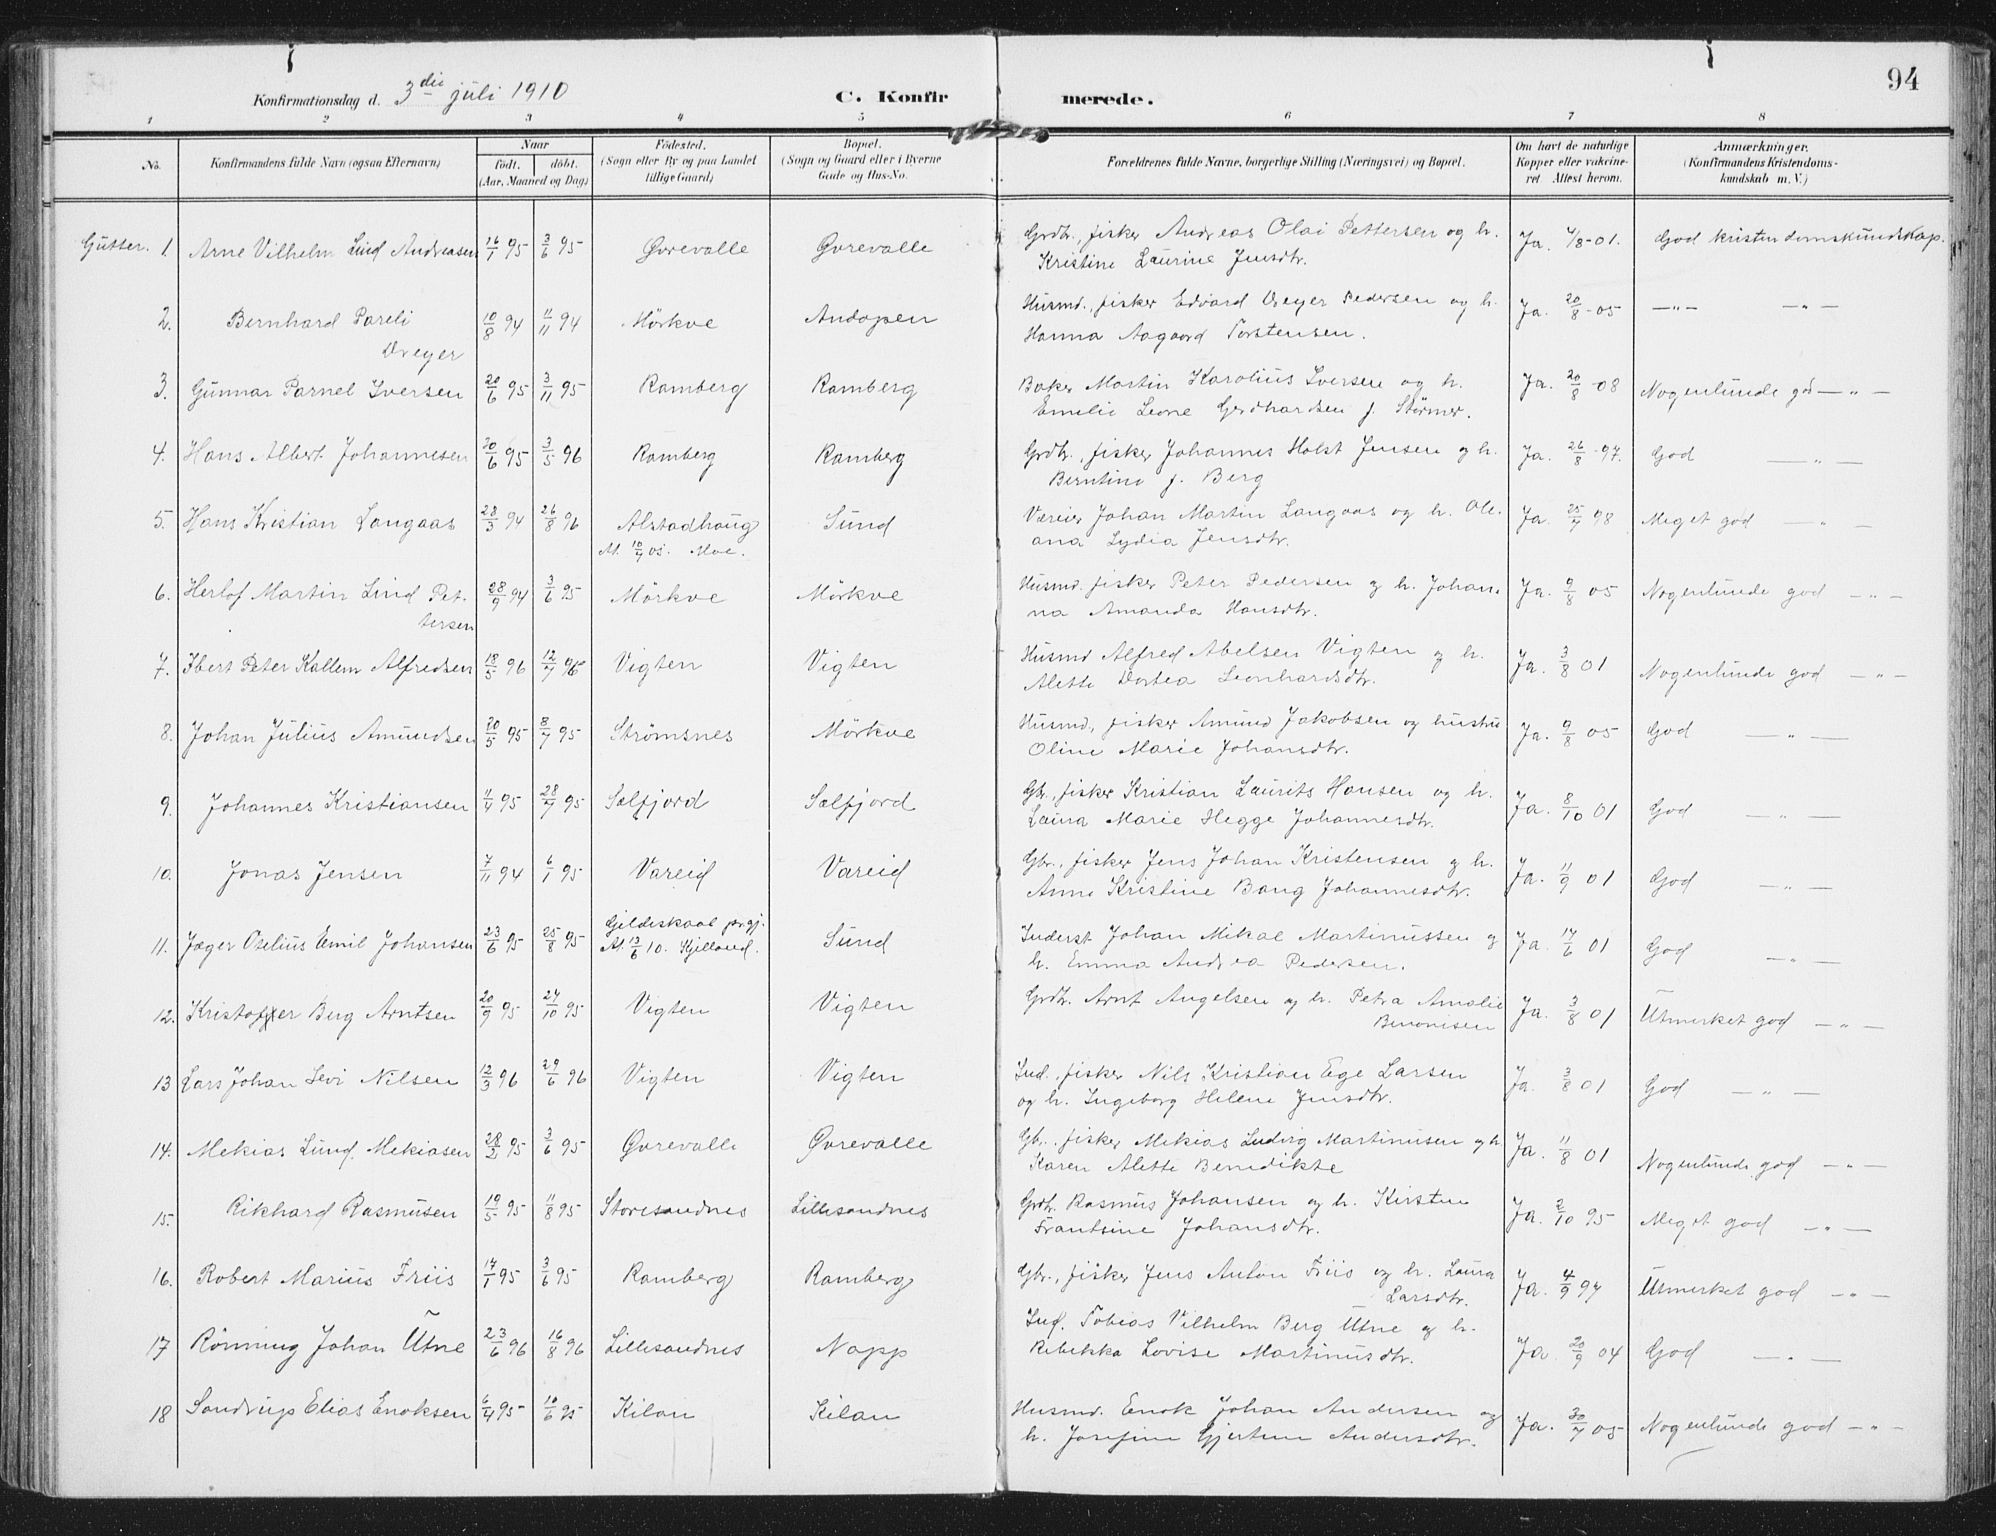 94
Konfirmationsdag d. 3die juli 1910 C. Konfirmerede.
1 2 3 4 5 6 7 8
No. Konfirmandens fulde Navn (ogsaa Efternavn) Naar født. døbt. (Aar, Maaned og Dag) Fødested. (Sogn eller By og paa Landet tillige Gaard) Bopæl. (Sogn og Gaard eller i Byerne Gade og Hus-No. Forældrenes fulde Navne, borgerlige Stilling (Næringsvei) og Bopæl. Om havt de naturlige Kopper eller vakcineret. Attest herom. Anmærkninger. (Konfirmandens Kristendomskundskab m. V.)
Gutter. 1. Arne Vilhelm Lind Andreasen 16/1 95 3/6 95 Øvrevalle Øvrevalle Grdbr., fisker Andreas Olai Pettersen og h. Ja. 4/8-01. God kristendomskundskap.
Kristine Laurine Jensdtr.
2. Bernhard Pareli 10/8 94 11/11 94 Mörkve Andopen Husmd., fisker Edvard Dreyer Pedersen og h. Ja. 20/8-05 —„— —„—
Dreyer Hanna Aagaard Torstensen.
3. Gunnar Parnel Iversen 20/6 95 3/11 95 Ramberg Ramberg Baker Martin Karolius Iversen og h. Ja. 20/8-08 Nogenlunde god —„—
Emelie Leone Gerdhardsen f. Störmer.
4. Hans Albert Johannesen 20/6 95 3/5 96 Ramberg Ramberg Grdbr., fisker Johannes Holst Jensen og h. Ja. 26/8-97. God —„—
Berntine f. Berg
5. Hans Kristian Langaas 28/3 94 26/8 96 Alstadhaug Sund Væreier Johan Martin Langaas og h. Ole- Ja. 25/7 98 Meget god —„—
At. 10/7 05. Moe. ana Lydia Jensdtr.
6. Herlof Martin Lind Pet- 28/9 94 3/6 95 Mörkve Mörkve Husmd. fisker Peter Pedersen og h. Johan- Ja. 9/8 05 Nogenlunde god —„—
tersen na Amanda Hansdtr.
7. Ibert Peter Kallem Alfredsen 18/5 96 12/7 96 Vigten Vigten Husmd Alfred Abelsen Vigten og h. Ja. 3/8 01 Nogenlunde god —„—
Alette Dortea Leonhardsdtr.
8. Johan Julius Amundsen 20/5 95 8/7 95 Strömsnes Mörkve Husmd., fisker Amund Jakobsen og hustru Ja. 9/8 05 God —„—
Oline Marie Johansdtr.
9. Johannes Kristiansen 11/4 95 28/7 95 Selfjord Selfjord Gbr., fisker Kristian Laurits Hansen og h. Ja. 8/10 01 God —„—
Laura Marie Hegge Johannesdtr.
10. Jonas Jensen 7/11 94 6/1 95 Vareid Vareid Gbr., fisker Jens Johan Kristensen og h. Ja. 11/9 01 God —„—
Anne Kristine Bang Johannesdtr.
11. Jæger Otelius Emil Johansen 23/6 95 25/8 95 Gildeskaal prgj. Sund Inderst Johan Mikal Martinussen og Ja 17/6 01 God —„—
At. 13/6 10. Kjelland. h. Emma Andrea Pedersen.
12. Kristoffer Berg Arntsen 20/9 95 27/10 95 Vigten Vigten Grdbr. Arnt Angelsen og h. Petra Amalie Ja. 3/8 01 Utmerket god —„—
Benonisen
13 Lars Johan Levi Nilsen 12/3 96 29/6 96 Vigten Vigten Ind., fisker Nils Kristian Ege Larsen Ja. 3/8 01 God —„—
og h. Ingeborg Helene Jensdtr.
14. Mekias Lund Mekiasen 28/2 95 3/6 95 Øvrevalle Øvrevalle Gbr., fisker Mekias Ludvig Martinusen og h. Ja. 11/8 01 Nogenlunde god —„—
Karen Alette Benedikte
15. Rikhard Rasmusen 19/5 95 11/8 95 Storesandnes Lillesandnes Grdbr. Rasmus Johansen og h. Kirsten Ja. 2/10 95 Meget god —„—
Frantsine Johansdtr.
16. Robert Marius Friis 17/1 95 3/6 95 Ramberg Ramberg Gbr., fisker Jens Anton Friis og h. Laura Ja. 4/9 97 Utmerket god —„—
Larsdtr.
17 Rönning Johan Utne 23/6 96 16/8 96 Lillesandnes Napp Ind. Tobias Vilhelm Berg Utne og h. Ja. 20/9 04 God —„—
Rebekka Lovise Martinusdtr.
18 Sandrup Elias Enoksen 6/4 95 10/6 95 Kilan Kilan Husmd. Enok Johan Andersen og Ja. 30/7 05 Nogenlunde god —„—
h. Josefine Gjertine Andersdtr.